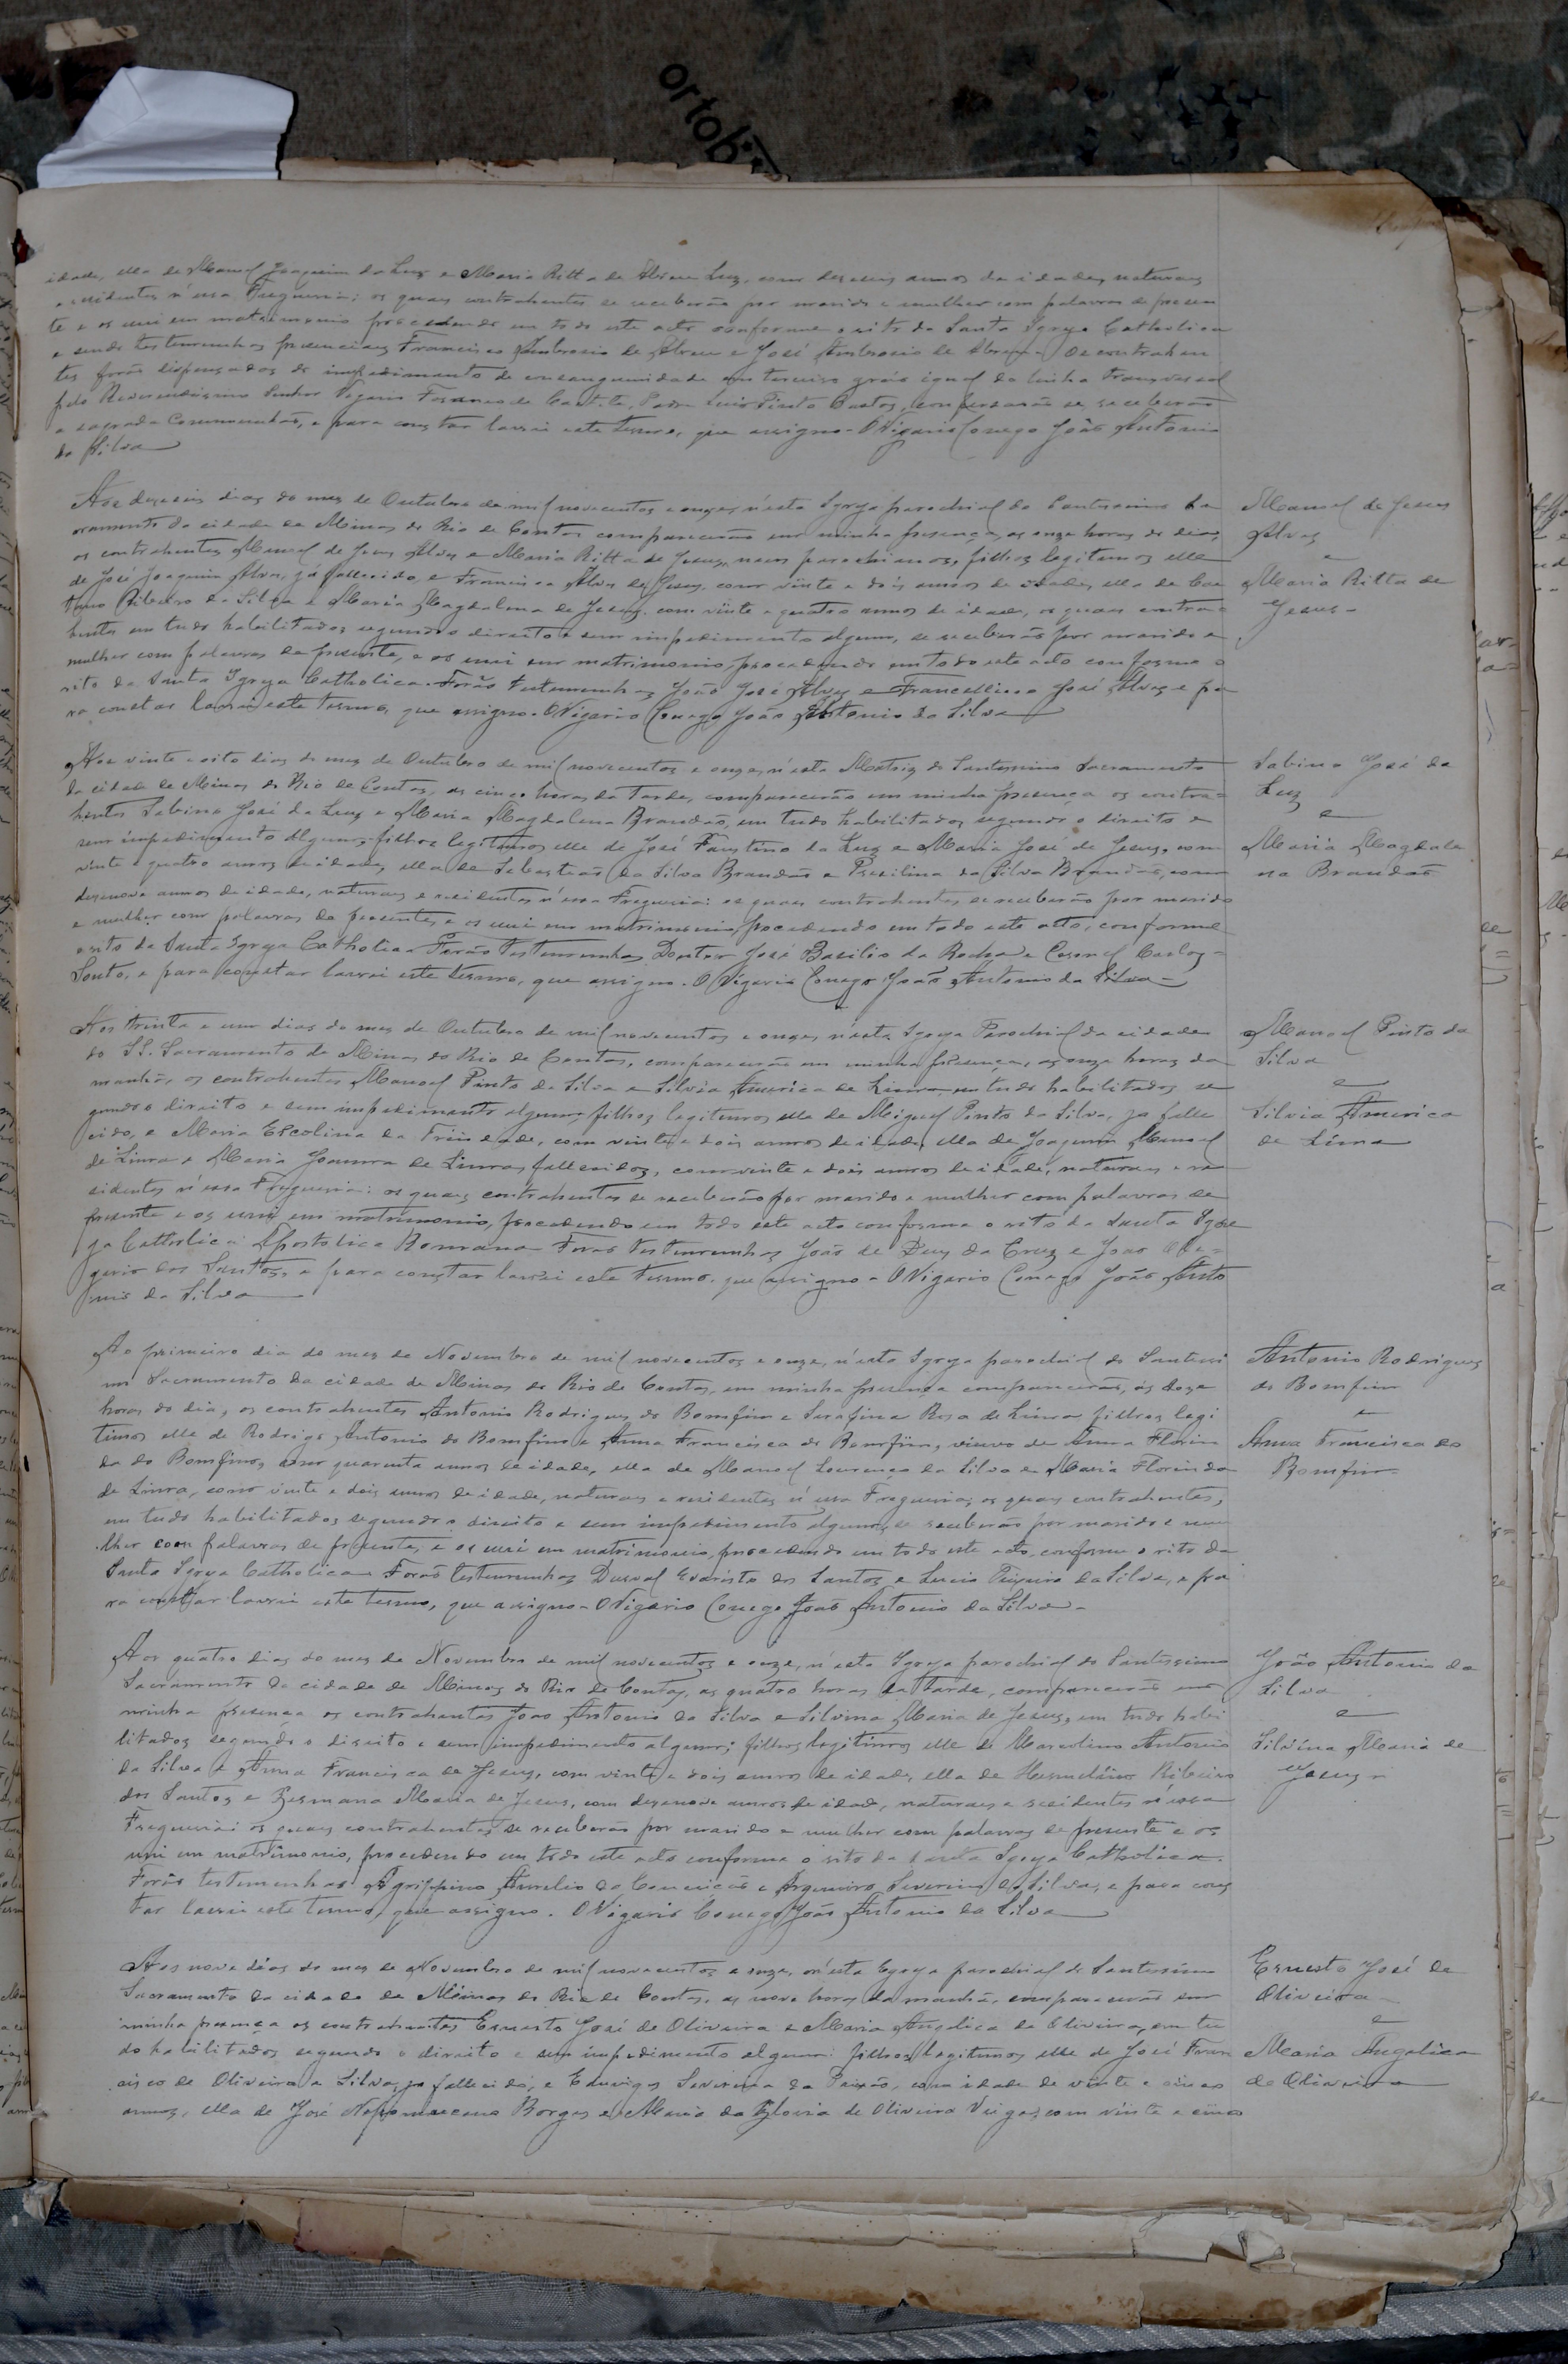 ortob
idade, ella de Manoel Joaquim da Luz e Maria Ritta de Abreu Luz, com deseseis annos de idade, naturaes
e residentes n'essa Freguesia: os quaes contrahentes se receberão por marido e mulher com palavras de presen
te e os uni em matrimonio procedendo em todo este acto conforme o rito da Santa Igreja Catholica
e sendo testemunhas presenciaes Francisco Ambrosio de Abreu e José Ambrosio de Abreu. Os contrahen
tes forão dispensados do impedimento de consanguinidade em terceiro gráo igual da linha transversal
pelo Reverendissimo Senhor Vigario Foraneo de Caetité, Padre Luis Pinto Bastos, confessarão se, receberão
a sagrada Communhão, e para constar lavrei este termo, que assigno. O Vigario Conego João Antonio
da Silva
Aos deseseis dias do mez de Outubro de mil novecentos e onze, n'esta Igreja parochial do Santissimo Sa
cramento da cidade de Minas do Rio de Contas comparecerão em minha presença, as onze horas do dia,
os contrahentes Manoel de Jesus Alves e Maria Ritta de Jesus, meus parochianos, filhos legitimos elle
de José Joaquim Alves, já fallecido, e Francisca Alves de Jesus, com vinte e dois annos de idade, ella de Cae
tano Ribeiro da Silva e Maria Magdalena de Jesus, com vinte e quatro annos de idade, os quaes contra=
hentes em tudo habilitados segundo o direito e sem impedimento algum, se receberão por marido e
mulher com palavras de presente, e os uni em matrimonio, procedendo em todo este acto conforme o
rito da Santa Igreja Catholica. Forão testemunhas João José Alves e Francellino José Alves e pa
ra constar lavrei este termo, que assigno. O Vigario Conego João Antonio da Silva
Manoel de Jesus
Alves
e
Maria Ritta de
Jesus-
Aos vinte e oito dias do mez de Outubro de mil novecentos e onze, n'esta Matriz do Santissimo Sacramento
da cidade de Minas do Rio de Contas, as cinco horas da tarde, comparecerão em minha presença os contra=
hentes Sabino José da Luz e Maria Magdalena Brandão, em tudo habilitados segundo o direito e
sem impedimento algum, filhos legitimos elle de José Faustino da Luz e Maria José de Jesus, com
vinte e quatro annos de idade, ella de Sebastião da Silva Brandão e da Silva Brandão, com
desenove annos de idade, naturaes e residentes n'essa Freguesia: os quaes contrahentes se receberão por marido
e mulher com palavras de presente, e os uni em matrimonio, procedendo em todo este acto, conforme
o rito da Santa Igreja Catholica. Forão testemunhas Doutor José Basilio da Rocha e Coronel Carlos=
Souto, e para constar lavrei este termo, que assigno. O Vigario Conego João Antonio da Silva-
Sabino José da
Luz
e
Maria Magdale
na Brandão
Aos trinta e um dias do mez de Outubro de mil novecentos e onze, n'esta Igreja Parochial da cidade
do SS. Sacramento de Minas do Rio de Contas, comparecerão em minha presença, as onze horas da
manhã, os contrahentes Manoel Pinto da Silva e Silvia America de Lima, em tudo habilitados se
gundo o direito e sem impedimento algum, filhos legitimos elle de Miguel Pinto da Silva, já falle
cido, e Maria Escolina da Trindade, com vinte e dois annos de idade, ella de Joaquim Manoel
de Lima e Maria Joanna de Lima, fallecidos, com vinte e dois annos de idade, naturaes e re
sidentes n'essa Freguesia: os quaes contrahentes se receberão por marido e mulher com palavras de
presente e os uni em matrimonio, procedendo em todo este acto conforme o rito da Santa Igre
ja Catholica Apostolica Romana. Forão testemunhas João de Deus da Cruz e João
dos Santos, e para constar lavrei este termo, que assigno. O Vigario Conego João Anto
nio da Silva
Manoel Pinto da
Silva
e
Silvia America
de Lima
Ao primeiro dia do mez de Novembro de mil novecentos e onze, n'esta Igreja parochial do Santissi
mo Sacramento da cidade de Minas do Rio de Contas, em minha presença comparecerão, ás doze
horas do dia, os contrahentes Antonio Rodrigues do Bomfim e Serafina Rosa de Lima, filhos legi
timos elle de Rodrigo Antonio do Bomfim e Anna Francisca do Bomfim, viuvo de Anna Florin
da do Bomfim, com quarenta annos de idade, ella de Manoel Lourenço da Silva e Maria Florinda
de Lima, com vinte e dois annos de idade, naturaes e residentes n'essa Freguesia, os quaes contrahentes,
em tudo habilitados segundo o direito e sem impedimento algum, se receberão por marido e mu
lher com palavras de presente, e os uni em matrimonio, procedendo em todo este acto, conforme o rito da
Santa Igreja Catholica. Forão testemunhas Durval Evaristo dos Santos e Lucio da Silva, e pa
ra constar lavrei este termo, que assigno- O Vigario Conego João Antonio da Silva-
Antonio Rodrigues
do Bomfim
e
Anna Francisca do
Bomfim=
Aos quatro dias do mez de Novembro de mil novecentos e onze, n'esta Igreja parochial do Santissimo
Sacramento da cidade de Minas do Rio de Contas, as quatro horas da tarde, comparecerão em
minha presença os contrahentes João Antonio da Silva e Silvina Maria de Jesus, em tudo habi
litados segundo o direito e sem impedimento algum; filhos legitimos elle de Marcolino Antonio
da Silva e Anna Francisca de Jesus, com vinte e dois annos de idade, ella de Hermelino Ribeiro
dos Santos e Germana Maria de Jesus, com desenove annos de idade, naturaes e residentes n'essa
Freguesia: os quaes contrahentes se receberão por marido e mulher com palavras de presente e os
uni em matrimonio, procedendo em todo este acto conforme o rito da Santa Igreja Catholica.
Forão testemunhas Agrippino Aurelio da Conceição e Argemiro Severino da Silva, e para cons
tar lavrei este termo, que assigno. O Vigario Conego João Antonio da Silva
João Antonio da
Silva
e
Silvina Maria de
Jesus-
Aos nove dias do mez de Novembro de mil novecentos e onze, n'esta Egreja parochial do Santissimo
Sacramento da cidade de Minas do Rio de Contas, as nove horas da manhã, comparecerão em
minha presença os contrahentes Ernesto José de Oliveira e Maria Angelica de Oliveira, em tu
do habilitados segundo o direito e sem impedimento algum: filhos legitimos elle de José Fran
cisco de Oliveira e Silva, já fallecido, e Eduviges Severina da Paixão, com idade de vinte e cinco
annos, ella de José Nepomuceno Borges e Maria da Gloria de Oliveira Viegas, com vinte e cinco
Ernesto José de
Oliveira-
e
Maria Angelica
de Oliveira